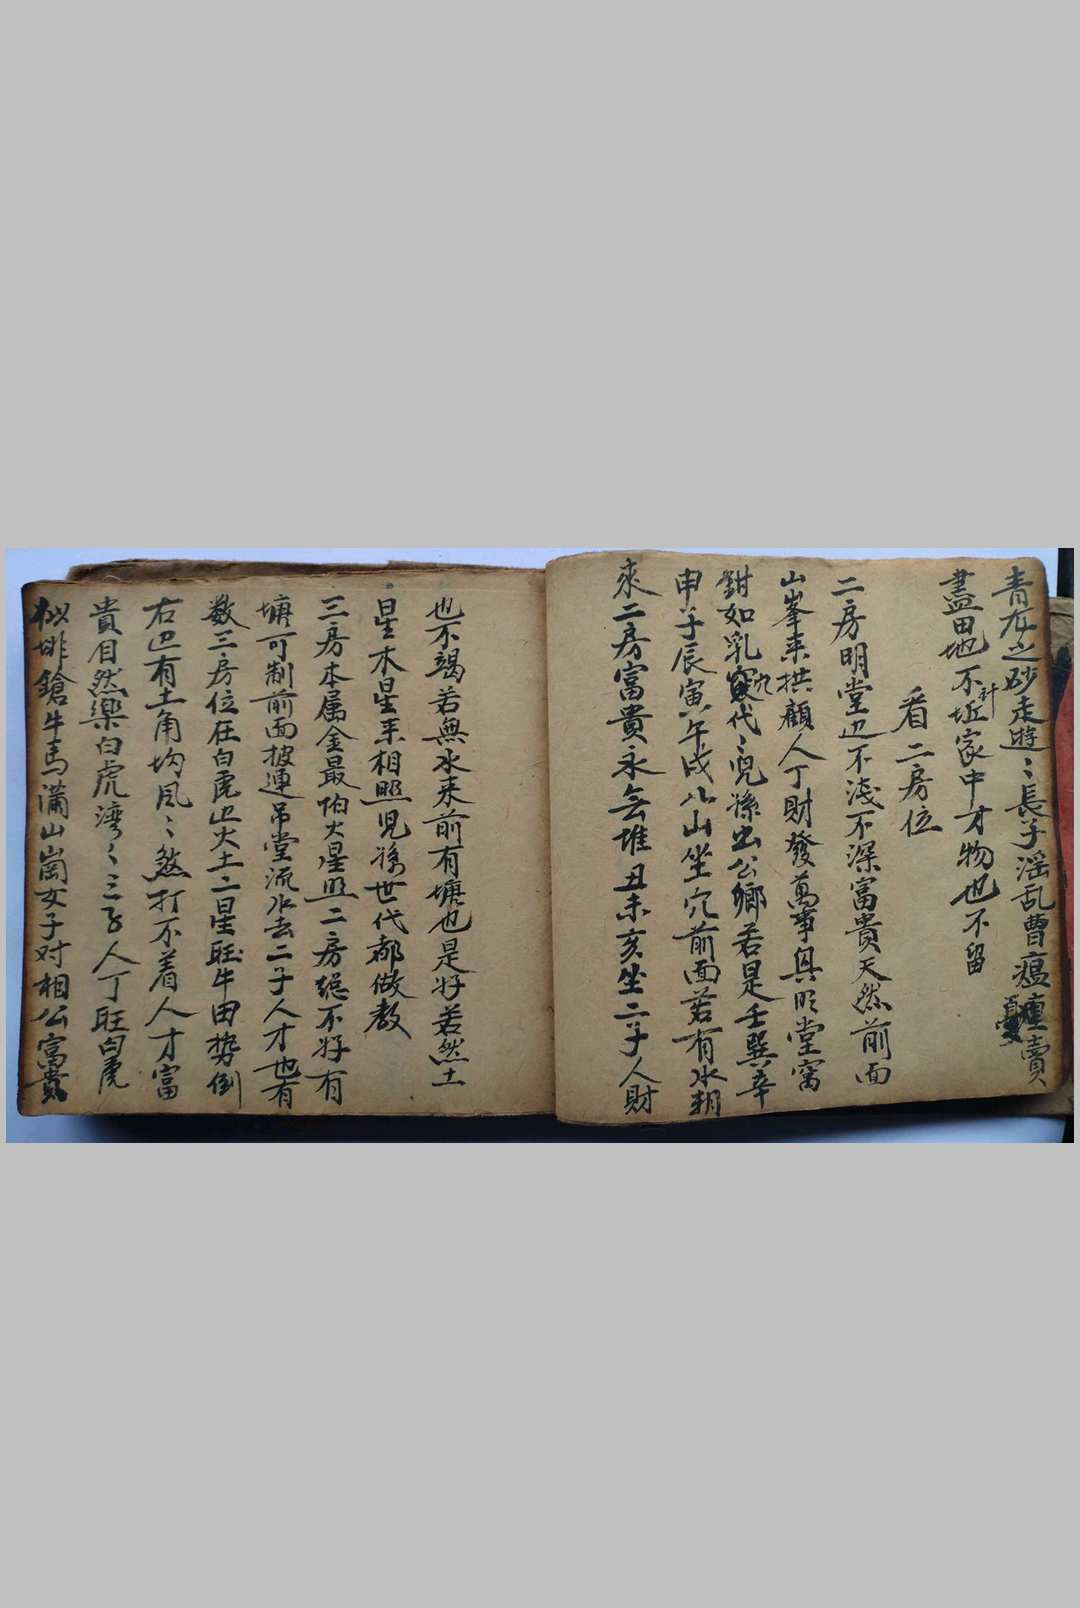 青龙之砂走遊〻長子滛乱曹瘟㾏賣
盡田地不坵家中才物也不留
看二房位
二房明堂边不淺不深富貴天然前面
山峯来拱顧人丁財發萬事興明堂窩
鉗如乳窝代〻児孫出公鄉若是壬巽辛
申子辰寅午戌八山坐穴前面若有水朝
來二房富貴永無堆丑未亥坐二子人財
也不竭若無水来前有塘也是好若然土
星木星来相照児孫世代都做教
三房本属金最怕火星照二房総不好有
塘可制前面披連吊堂流水去二子人才也有
数三房位在白虎边火土二星旺牛田势倒
右边有土角均風〻煞打不着人才富
貴自然樂白虎湾〻三子人丁旺白虎
似排鎗牛馬滿山崗女子对相公富貴